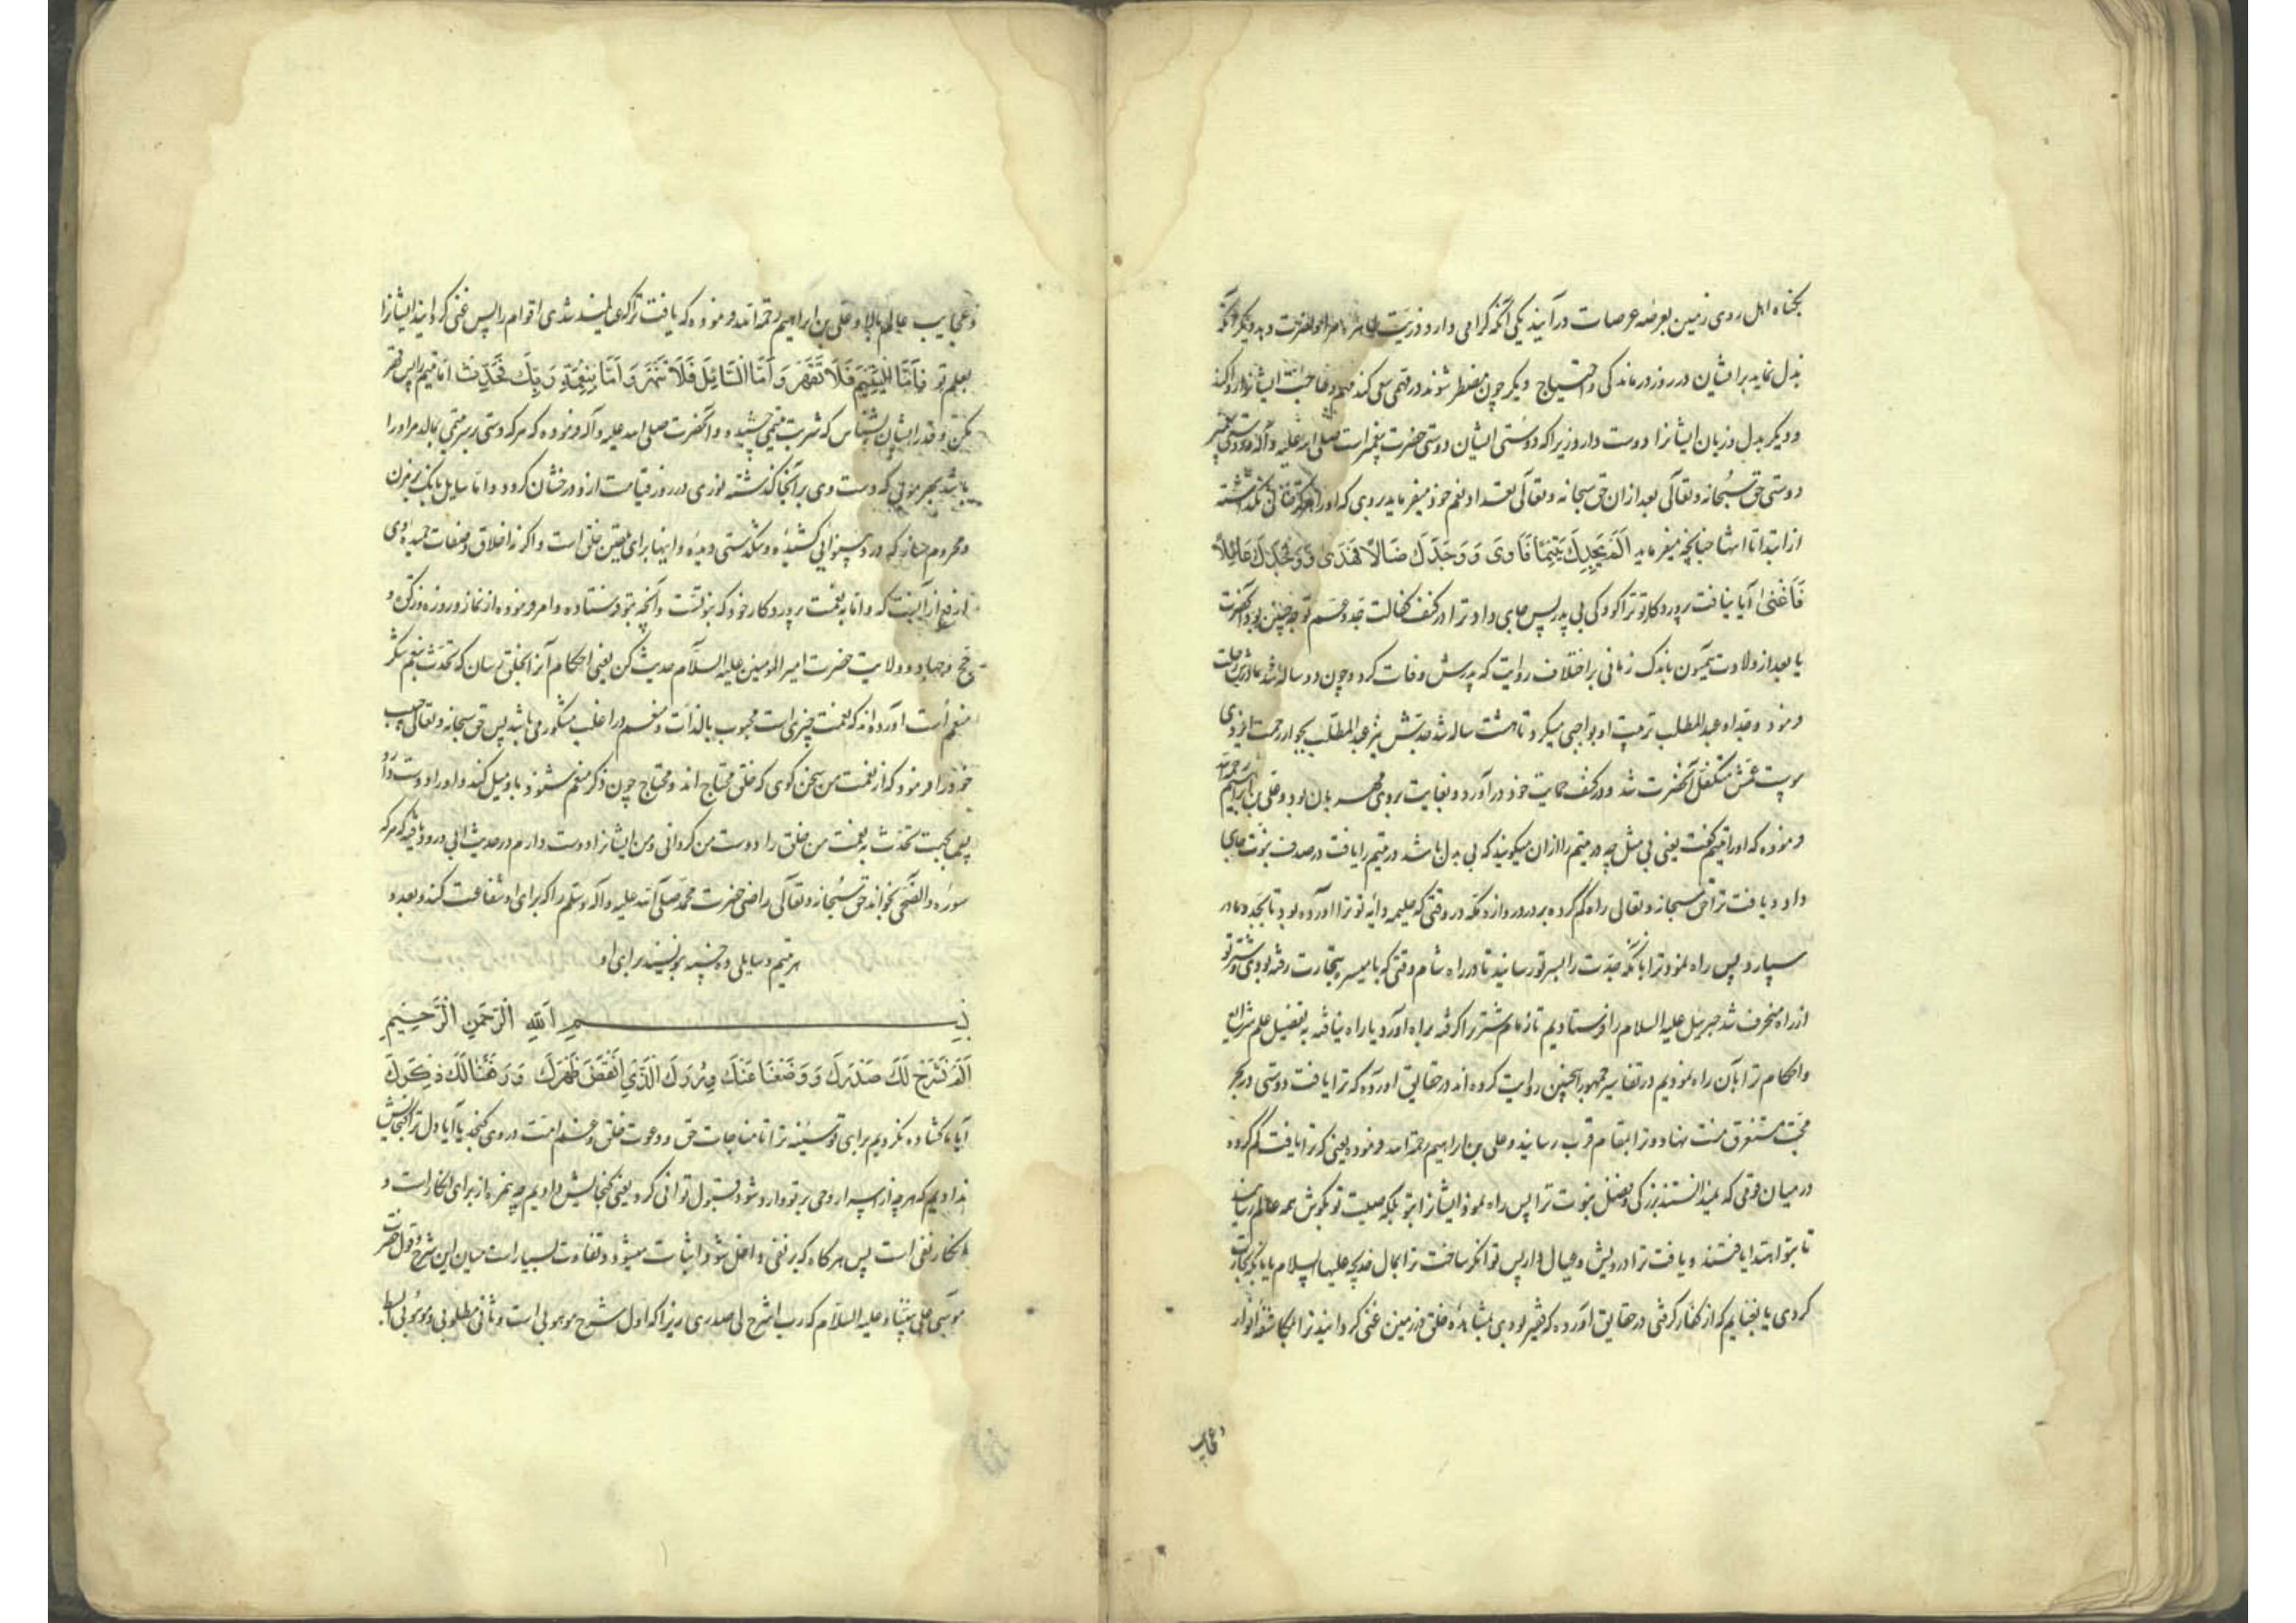 بگناه اهل روی زمین بعرضه عرصات درآیند یکی آنکه گرامی دارد ذریت مرا
بذل نماید برایشان در روز درماندگی و احتیاج و دیگر چون مضطر شوند در مهمی سعی کند
و دیگر بدل و زبان ایشانرا دوست دارد زیرا که دوستی ایشان دوستی حضرت پیغمبر است صلی الله علیه و آله و دوستی پیغمبر
دوستی حق سبحانه و تعالی بعد از ان حق سبحانه و تعالی تعداد نعم خود میفرماید بروی که او را هرگز نگذاشته
از ابتدا تا انتها چنانچه میفرماید اَلَمْ یَجِدْكَ یَتِیمًا فَآوَی وَوَجَدَكَ ضَالًّا فَهَدَی وَوَجَدَكَ عَائِلًا
فَأَغْنَی آیا نیافت پروردگار تو ترا کودکی بی پدر پس جای داد ترا در کنف کفالت جد و عم تو چه چنین بود که آنحضرت
یا بعد از ولادت میمون باندک زمانی بر اختلاف روایت که پدرش وفات کرد و چون دو ساله شد مادرش رحلت
فرمود و جد او عبدالمطلب تربیت او بواجبی میکرد تا هشت ساله شد جدش نیز عبدالمطلب بجوار رحمت ایزدی
پیوست عمش متکفل آنحضرت شد و در کنف حمایت خود درآورد و بغایت بروی مهربان بود و علی بن ابراهیم رحمه الله
فرموده که او را یتیم گفت یعنی بی مثل چه در یتیم را از ان میگویند که بی بدل باشد در یتیم را یافت در صدف نبوت جای
داد و یافت ترا حق سبحانه و تعالی راه گم کرده بر در دروازه مکه در وقتی که حلیمه دایه تو ترا آورده بود تا بجد و مادر
سپارد پس راه نمود ترا بآنکه جدت را بسر تو رسانید تا در راه شام وقتی که با میسره بتجارت رفته بودی و شتر تو
از راه منحرف شد جبرئیل علیه السلام را فرستادیم تا زمام شتر ترا گرفته براه آورد یا راه نیافته به تفصیل علم شرایع
و احکام ترا بآن راه نمودیم در تفاسیر جمهور اینچنین روایت کرده اند در حقایق آورده که ترا یافت دوستی در بحر
محبت مستغرق منت نهاد و ترا بمقام قرب رسانید و علی بن ابراهیم رحمه الله فرموده یعنی که ترا یافت گم کرده
در میان قومی که نمیدانستند بزرگی و فضل نبوت ترا پس راه نمود ایشانرا بتو بلکه صیت تو بگوش همه عالم رسانید
تا بتو اهتدا یافتند و یافت ترا درویش و عیال دار پس توانگر ساخت ترا بمال خدیجه علیها السلام یا بآنکه تجارت
کردی یا بغنایم که از کفار گرفتی در حقایق آورده که فقیر بودی بمشاهده خلق زمین غنی گردانید ترا بمکاشفه انوار
و عجایب
و عجایب عالم بالا و علی بن ابراهیم رحمه الله فرموده که یافت ترا که عیالمند شدی اقوام را پس غنی گردانید ایشانرا
بعلم تو فَأَمَّا الْیَتِیمَ فَلَا تَقْهَرْ وَأَمَّا السَّائِلَ فَلَا تَنْهَرْ وَأَمَّا بِنِعْمَةِ رَبِّكَ فَحَدِّثْ اما یتیم را پس قهر
مکن و قدر ایشان بشناس که شربت یتیمی چشیده و آنحضرت صلی الله علیه و آله فرموده که هر که دستی بر سر یتیمی بمالد مر او را
باشد بهر مویی که دست وی بر آنجا گذشته نوری در روز قیامت از او درخشان گردد و اما سایل بانگ برمزن
و محروم مساز که درد بینوایی کشیده و تنگدستی دیده و اینها برای تلقین خلق است و اگرنه اخلاق و صفات حمیده وی
ارفع از آنست که و اما به نعمت پروردگار خود که بتو نعمت و آنچه بتو فرستاده و امر فرموده از نماز و روزه و زکوة و
حج و جهاد و ولایت حضرت امیرالمومنین علیه السلام حدیث کن یعنی احکام آنرا بخلق برسان که تحدث بنعم شکر
منعم است آورده اند که نعمت چیزی است محبوب بالذات و منعم در اغلب مشکور می باشد پس حق سبحانه و تعالی حبیب
خود را فرمود که از نعمت من سخن گوی که خلق محتاج اند و محتاج چون ذکر منعم شنود باو میل کند و او را دوست دارد
پس بجهت تحدث به نعمت من خلق را دوست من گردانی و من ایشانرا دوست دارم در حدیث ابی درود یافته که هر که
سوره والضحی بخواند حق سبحانه و تعالی راضی حضرت محمد صلی الله علیه و آله وسلم را که برای او شفاعت کند و بعدد
هر یتیم و سایلی ده حسنه بنویسند برای او
بِسْمِ اللهِ الرَّحْمَنِ الرَّحِیمِ
اَلَمْ نَشْرَحْ لَكَ صَدْرَكَ وَوَضَعْنَا عَنْكَ وِزْرَكَ الَّذِی أَنْقَضَ ظَهْرَكَ وَرَفَعْنَا لَكَ ذِكْرَكَ
آیا ما گشاده نکردیم برای تو سینه ترا تا مناجات حق و دعوت خلق و غم امت در وی گنجد یا آیا دل ترا گنجایش
ندادیم که هر چه از اسرار وحی بر تو وارد شود قبول توانی کرد یعنی گنجایش دادیم چه همزه از برای انکار است و
انکار نفی است پس هر گاه که بر نفی داخل شود اثبات میشود و تفاوت بسیار است میان این شرح و قول حضرت
موسی علی نبینا و علیه السلام که رب اشرح لی صدری زیرا که اول شرح موهوبی است و ثانی مطلوبی و موهوبی